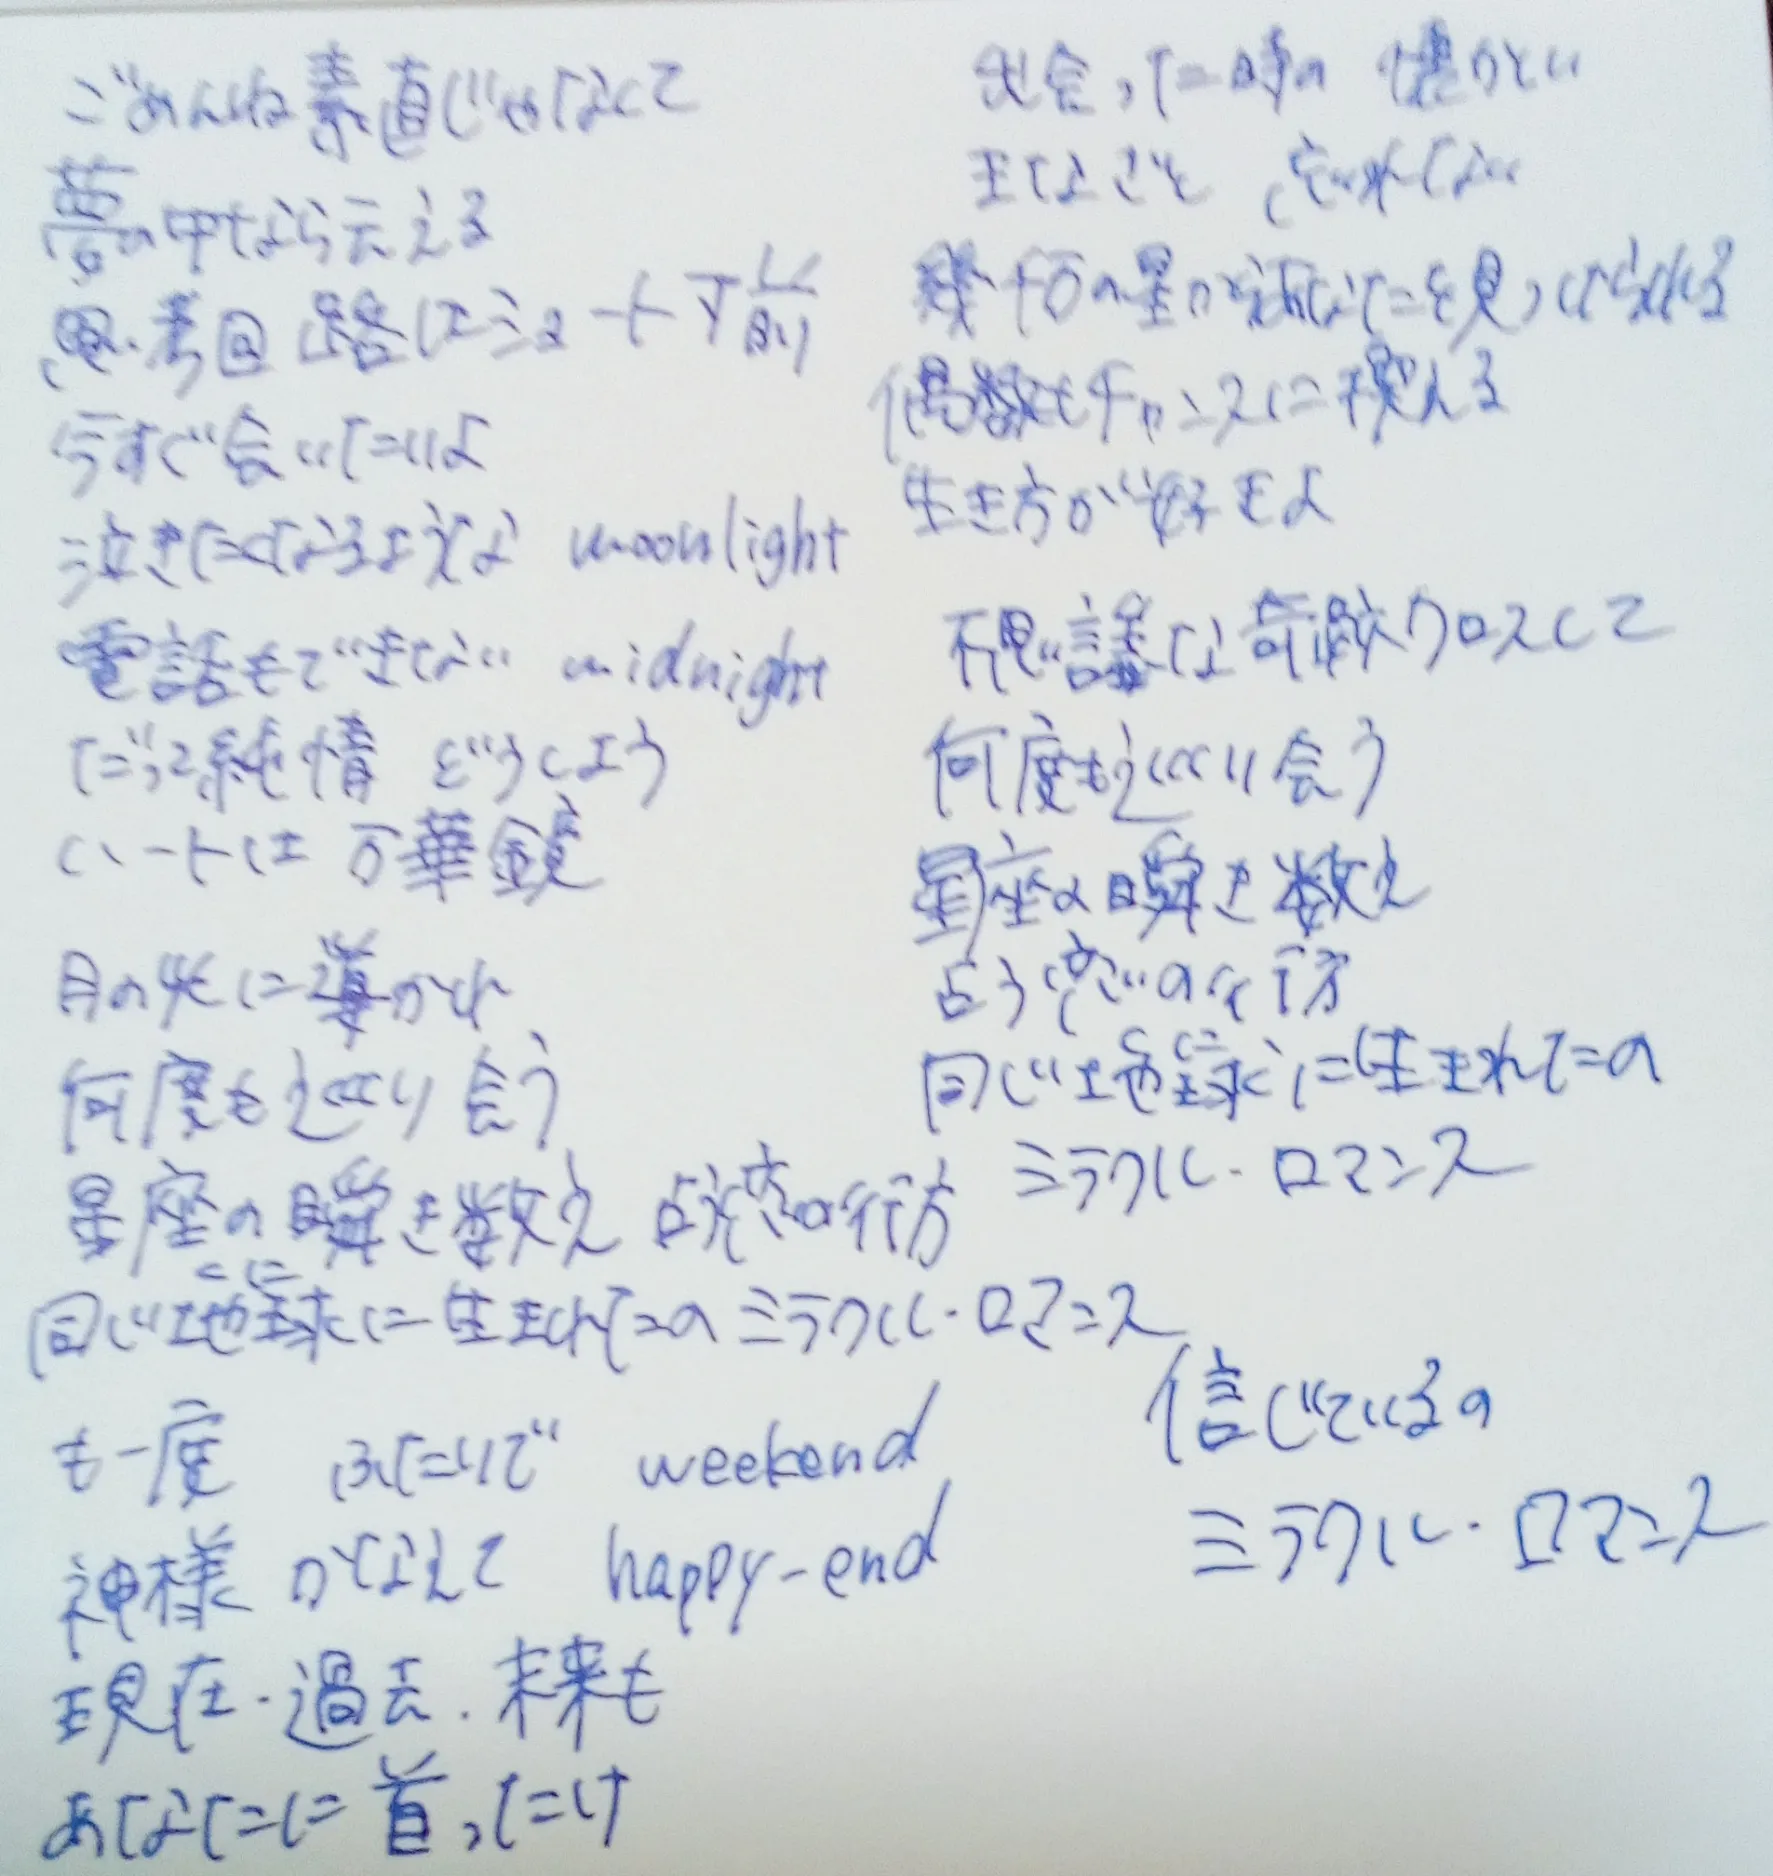 ごめんね素直じゃなくて
夢の中なら云える
思考回路はショート寸前
今すぐ会いたいよ
泣きたくなるような moonlight
電話もできない midnight
だって純情 どうしよう
ハートは万華鏡
月の光に導かれ
何度も巡り会う
星座の瞬き数え 占う恋の行方
同じ地球に生まれたの ミラクル・ロマンス
も一度 ふたりで weekend
神様 かなえて happy-end
現在・過去・未来も
あなたに首ったけ
出会った時の 懐かしい
まなざし 忘れない
幾千万の星からあなたを見つけられる
偶数もチャンスに換える
生き方が好きよ
不思議な奇跡クロスして
何度も巡り会う
星座の瞬き数え
占う恋の行方
同じ地球に生まれたの
ミラクル・ロマンス
信じているの
ミラクル・ロマンス